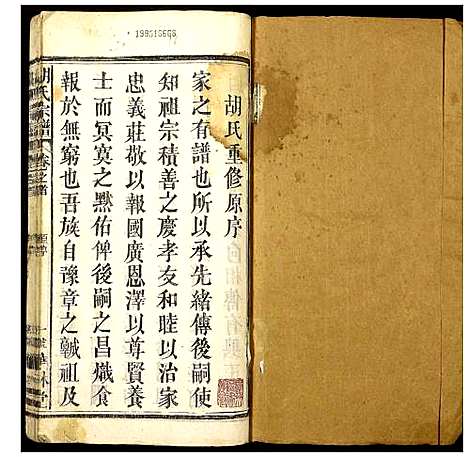 199515666
胡氏重修原序
家之有譜也所以承先緒傳後嗣使
知祖宗積善之慶孝友和睦以治家
忠義莊敬以報國廣恩澤以尊賢養
士而冥冥之默佑俾後嗣之昌熾食
報於無窮也吾族自豫章之誠祖及
胡氏宗譜 卷之首
華林堂